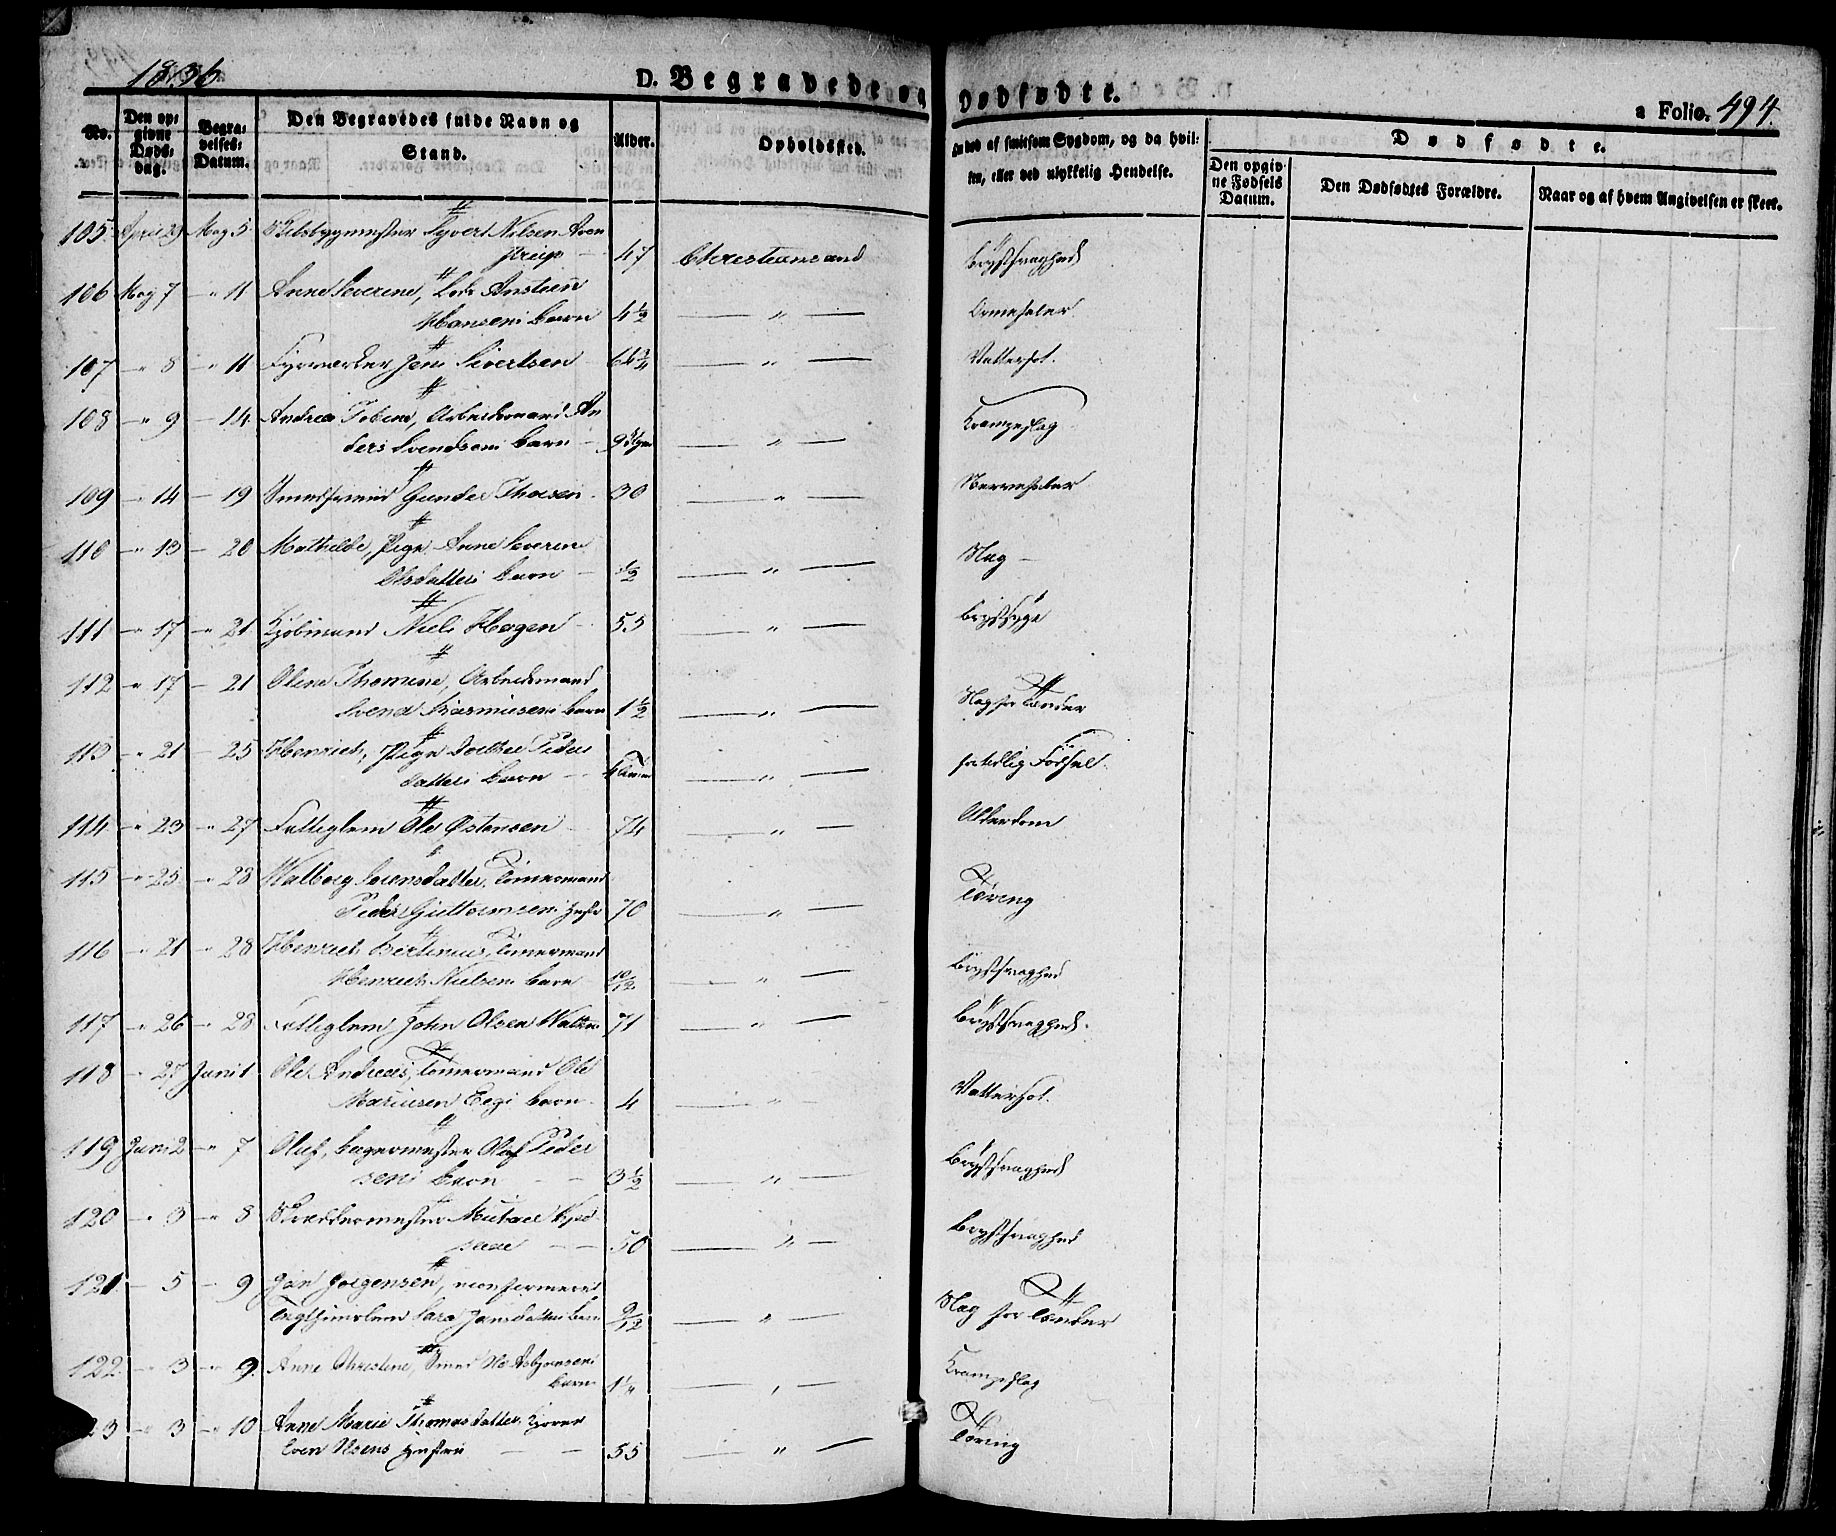 1836
D. Begravede og Dødfødte.
a Folio. 494
No.
Den op-
givne
Døds-
dag.
Begra-
velses-
Datum.
Den Begravedes fulde Navn og
Stand.
Alder.
Opholdssted.
Om død af smitsom Sygdom, og da hvil-
ken, eller ved ulykkelig Hendelse.
Dødfødte.
Den opgiv-
ne Fødsels
Datum.
Den Dødfødtes Forældre.
Naar og af hvem Angivelsen er skeet.
105. April 29 May 5. Skibsbygmester Syvert Nilsen
47 Christiansand Brystsvaghed
106 May 7 - " 11 Anne Severine,
Hansens Barn 4½ " Ormefeber.
107 - " 8 - " 11 Fyrværker Jens Sivertsen 66¾ " Vattersot.
108 - " 9 - 14. Andrea Tobine, Arbeidsmand An
ders Svendsens Barn - 9 " Krampeslag
109 - " 14 - 19 Gunder - 30 " Nervefeber
110 - " 13 - 20 Mathilde, Pige Anne Severine
Olsdatters Barn - ½ " Slag -
111 - " 17 - " 21 Kjøbmand Niels Hagen - 55 " Brystsyge
112 - " 17 - 21 Oline Thomine, Arbeidsmand
Svend Rasmusens Barn 1½ " Slag for Tænder
113 - " 21 - 25 Henrich, Pige Peders
datters Barn - 4 " fortidlig Födsel.
114 - " 23 - " 27 Fattiglem Ole Østensen - 74 " Alderdom
115 - " 25 - " 28 Walborg Sörensdatter, Tömermand
Peder Guttormsens Hustr 70 " Tæring
116 - " 21 - " 28 Henrich Bertinius, Tömermand
Henrich Nielsens Barn 10/12 " Brystsvaghed
117 - " 26 - " 28 Fattiglem John Olsen 71 " Brystsvaghed.
118 - " 27 Juni 1 Ole Andreas, Tömermand Ole
Mariusen Barn. 4 " Vattersot.
119 Juni 2 - " 7 Oluf, Bagermester Oluf Peder
sens Barn - - 3½ " Brystsvaghed
120 - " 3 - " 8 Skræddermester Michael
- - 50 " Brystsvaghed
121 - 5 - " 9 Jörgensen,
Tugthuuslem Sara Jansdatters Barn 9/12 " Slag for Tænder
122 - " 3 - " 9. Anne Christine, Smed
Barn 1¼ " Krampeslag
23 - " 3 - " 10 Anne Marie Thomasdatter,
Hustru - - 55 " Tæring